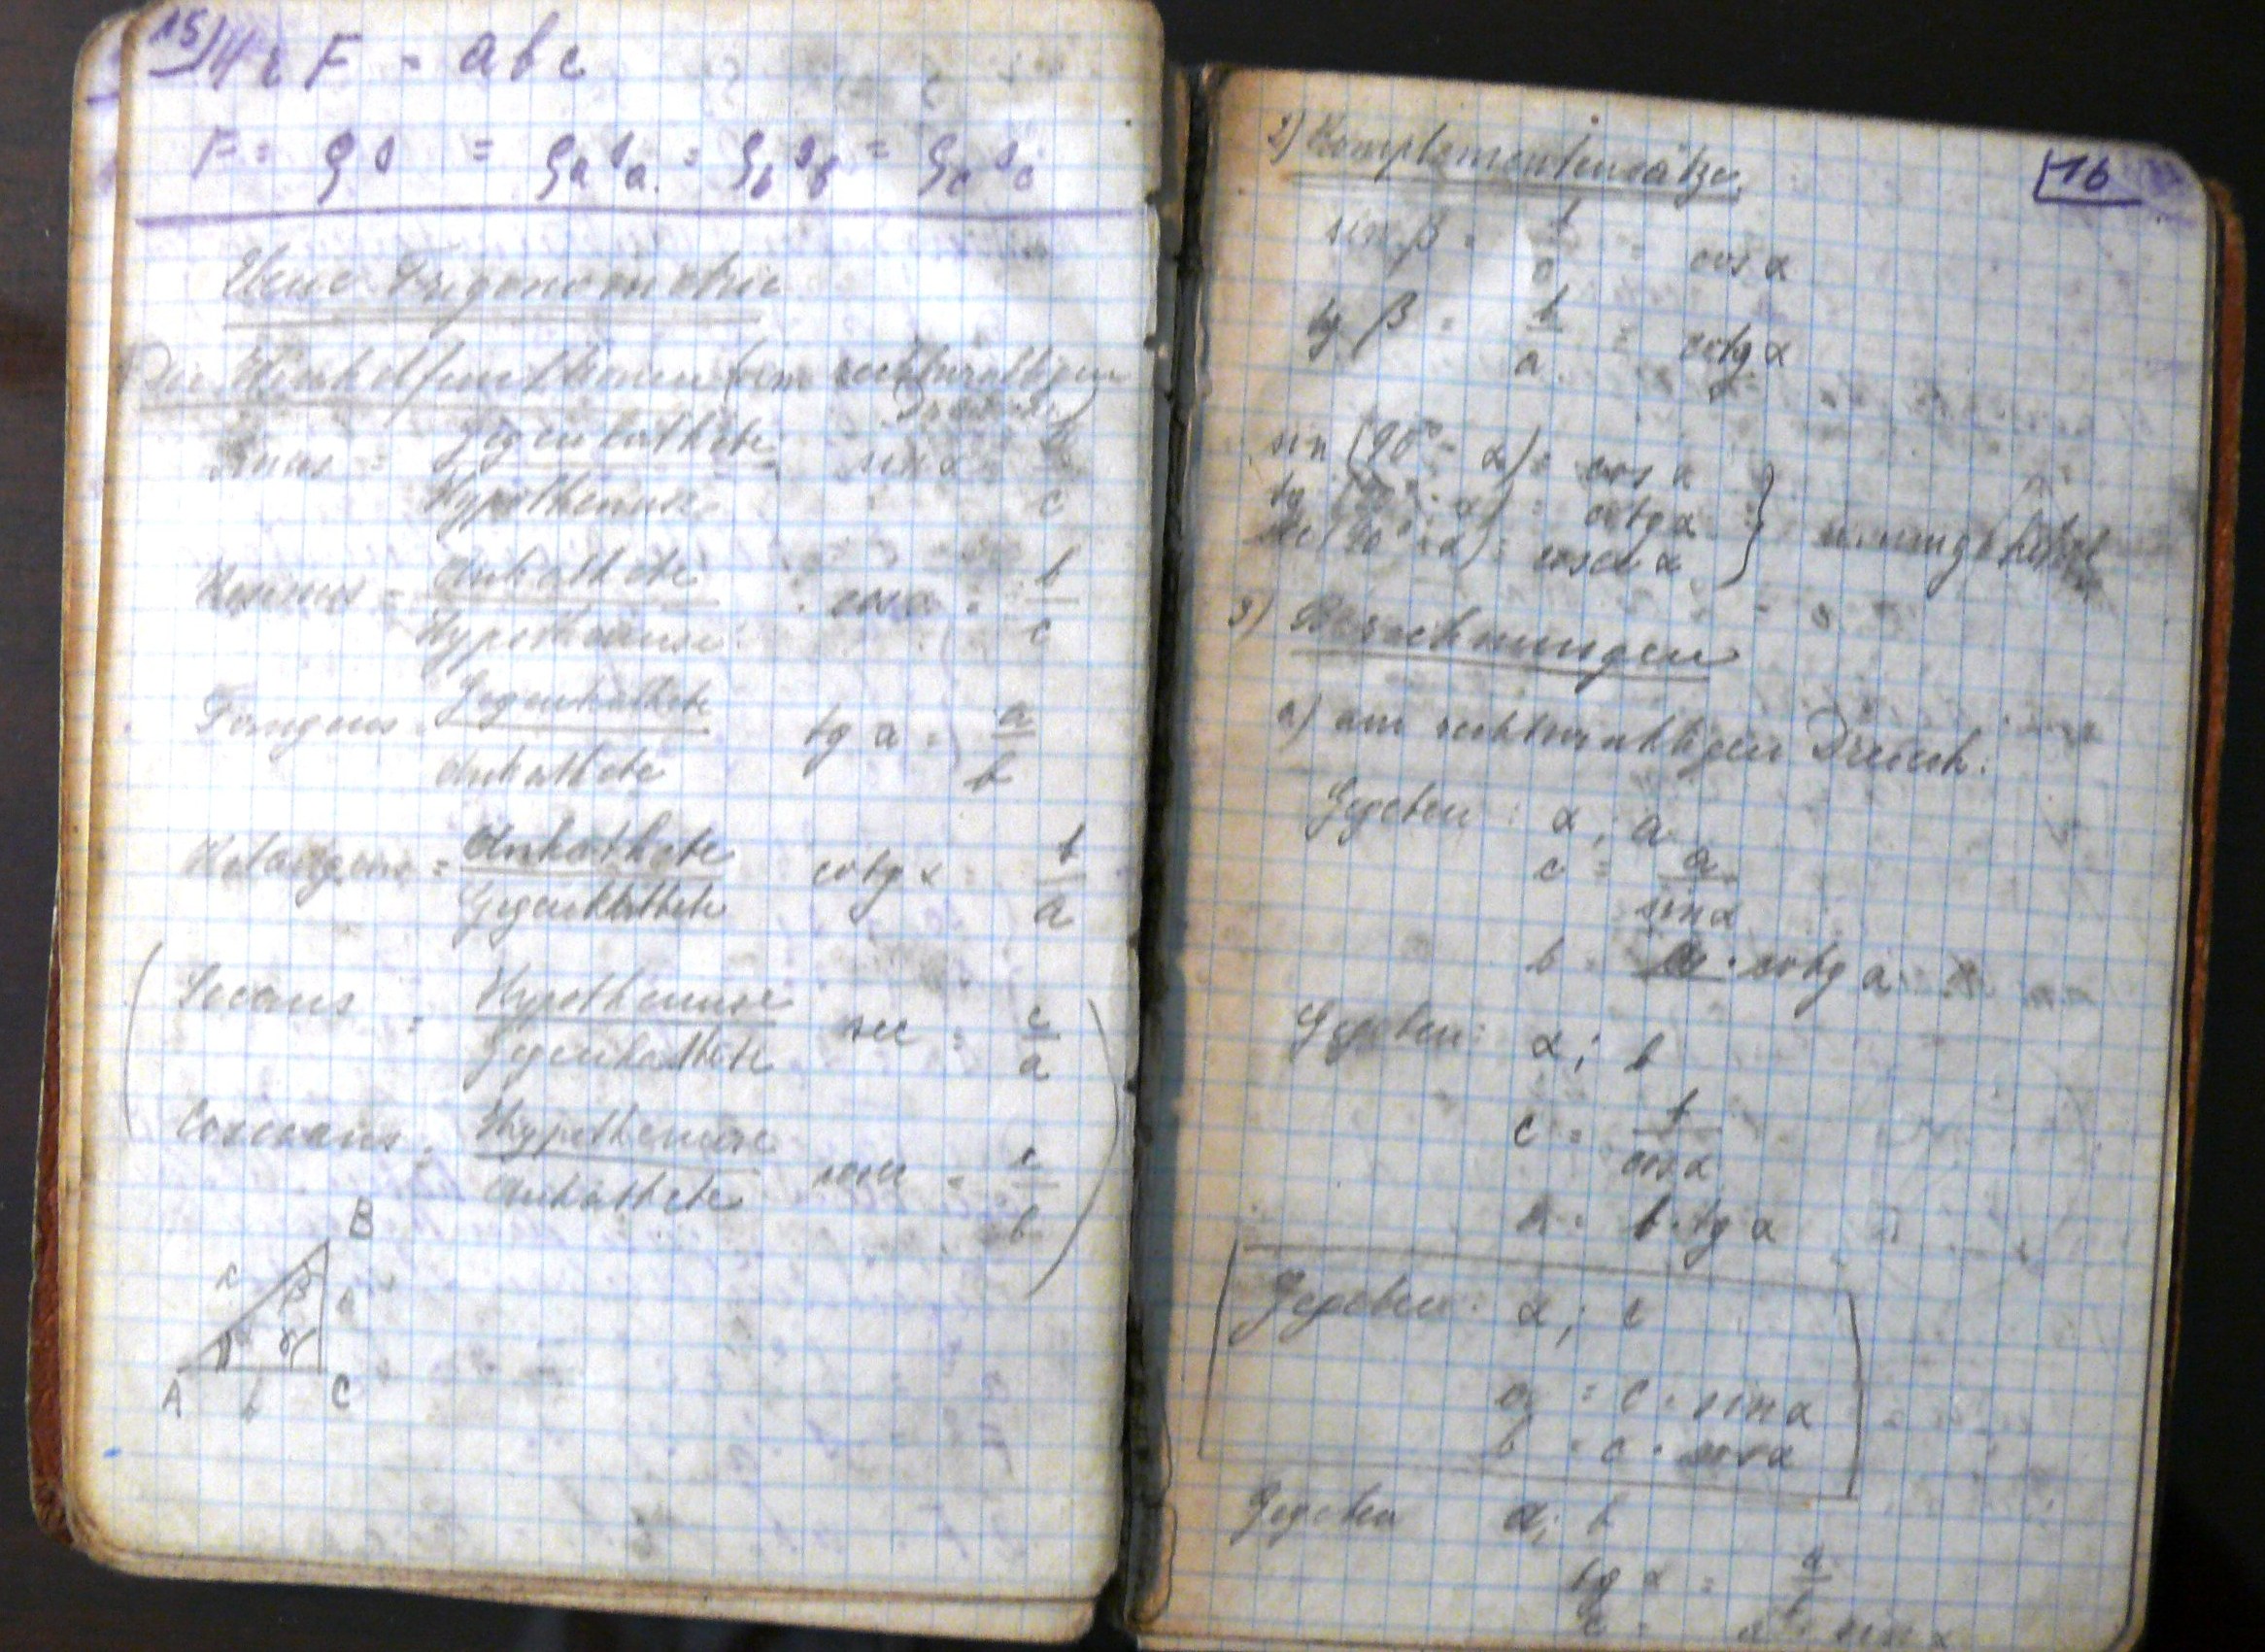 15)
4 r F = a b c
F = ϱ s = ϱa sa = ϱb sb = ϱc sc
Ebene Trigonometrie
Die Winkelfunktionen (im rechtwinkligen
Dreieck)
Sinus = Gegenkathete / Hypothenuse sin α = a / c
Kosinus = Ankathete / Hypothenuse cos α = b / c
Tangens = Gegenkathete / Ankathete tg α = a / b
Kotangens = Ankathete / Gegenkathete cotg α = b / a
(Secans = Hypothenuse / Gegenkathete sec = c / a
Cosecans = Hypothenuse / Ankathete cosec = c / b)
B
c β a
α γ
A b C
16
2) Komplementensätze
sin β = b / c = cos α
tg β = b / a = cotg α
sin (90° - α) = cos α
tg (90° - α) = cotg α
sec (90° - α) = cosec α } u. umgekehrt
3) Berechnungen
a) am rechtwinkligen Dreieck:
Gegeben: α; a
c = a / sin α
b = a · cotg α
Gegeben: α; b
c = b / cos α
a = b · tg α
Gegeben: α; c
a = c · sin α
b = c · cos α
Gegeben a; b
tg α = a / b